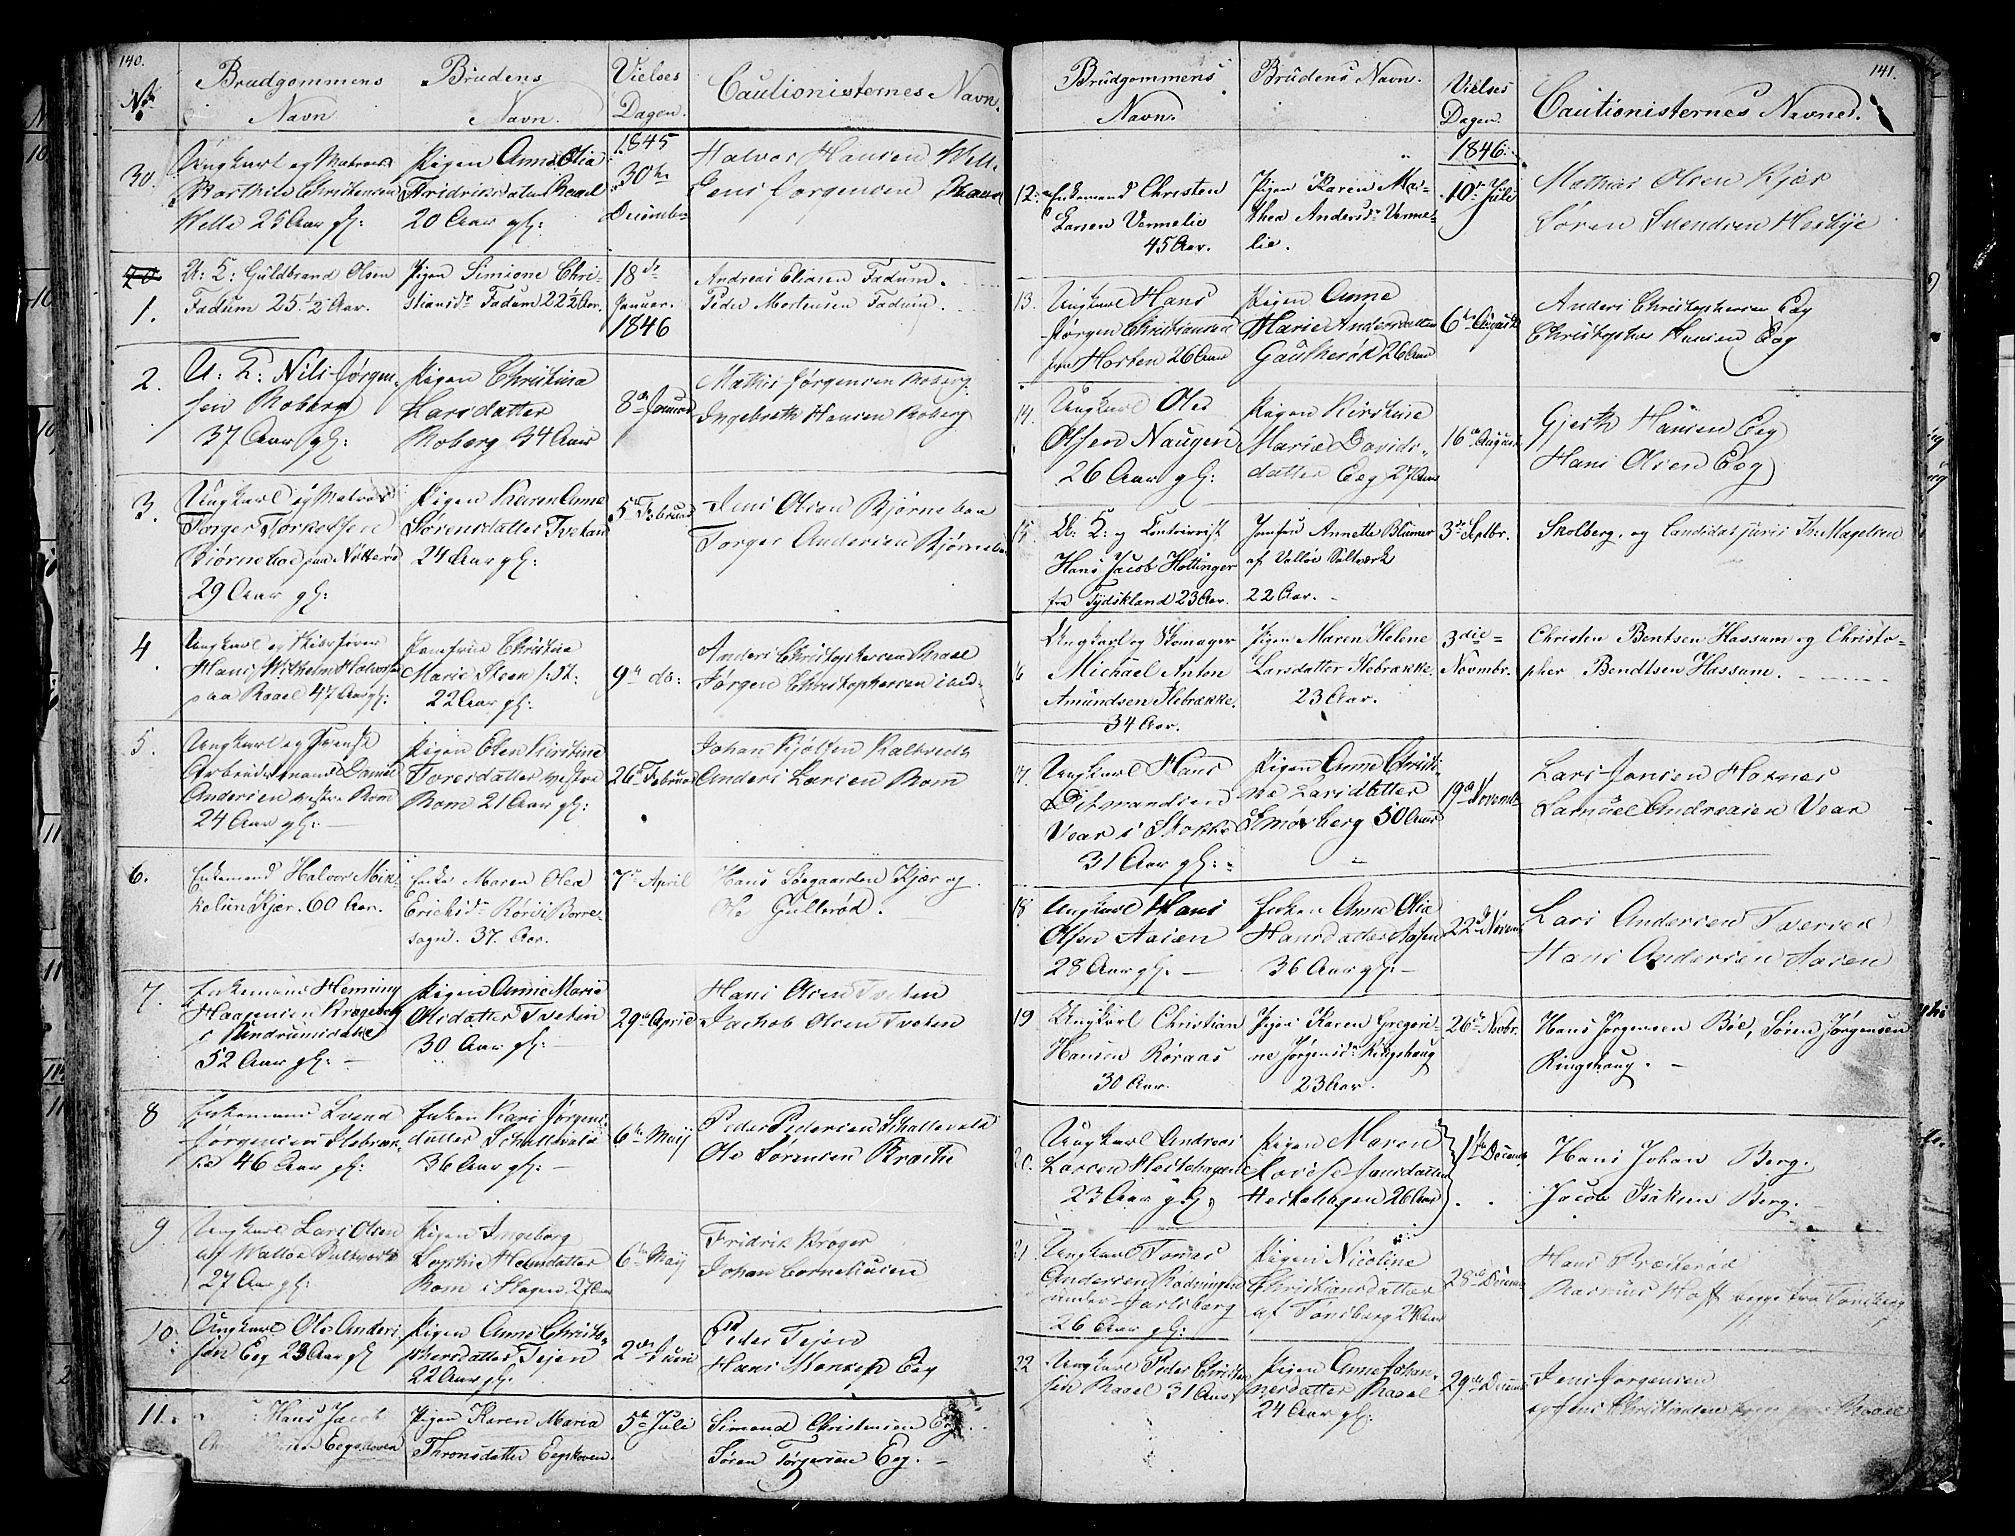 140.
No
Brudgommens
Navn
Brudens
Navn.
Vielses
Dagen.
Cautionisternes Navn.
30.
Ungkarl og Matros
Christensen
Welle 25 Aar gl:
Pigen Anne Olia
Fridriksdatter Raael
20 Aar gl:
1845
30te
December
Halvor Hansen Welle
Jens Jørgensen Raael
1.
U: K: Guldbrand Olsen
Fadum 25 1/2 Aar.
Pigen Simione Chri-
stiansdr Fadum 22 1/2 Aar.
18de
Januar.
1846
Andreas Eliasen Fadum.
Peder Mortensen Fadum.
2.
U: K: Nils Jørgen-
sen Roberg
37 Aar gl:
Pigen Christina
Larsdatter
Roberg 34 Aar
8de Januar
Mathis Jørgensen Roberg
Ingebreth Hansen Roberg
3.
Ungkarl og Matros
Torger Torkelsen
Biørneboe paa Nøtterø
29 Aar gl:
Pigen Karen Anne
Sørensdatter Tvetan
24 Aar gl:
5te Februar
Jens Olsen Bjørneboe
Torger Andersen Bjørneboe
4
Ungkarl og
Hans Wilhelm Halvorsen
paa Raael 47 Aar gl:
Jomfrue Christine
Marie Steen
22 Aar gl:
9de do:
Anders Christophersen Raael
Jørgen Christophersen ibid-
5.
Ungkarl og Svensk
Arbeidsmand Daniel
Andersen vestre Rom
24 Aar gl:
Pigen Elen Kirstine
Toresdatter vestre
Rom 21 Aar gl:
26de Februar
Johan
Anders Larsen Rom
6.
Enkemand Halvor Mik-
kelsen Kjær. 60 Aar.
Enke Maren Olea
Ericksdr Rørdi Borre
sogn. 37. Aar.
7de April
Hans Søegaarden Kjær og
Ole Gullerød.
7.
Enkemand Henning
Haagensen
i Andebu
52 Aar gl:
Pigen Anne Marie
Olsdatter Tveten
30 Aar gl:
29de April
Hans Olsen Tveten
Jachob Olsen Tveten
8
Enkemand Svend
Jørgensen Ilebræk-
ke 46 Aar gl:
Enken Kari Jørgens-
datter Schallevald
36 Aar gl:
6te Maij
Peder Pedersen Schallevald
Ole Sørensen Bræke
9
Ungkarl Lars Olsen
af Walløe Saltværk
27 Aar gl:
Pigen Ingeborg
Sophie Hansdatter
Rom i Hagen 27 Aar
6te Maij
Fridrik Krøger
Johan Cornelius​en
10.
Ungkarl Ole Anders-
sen Eeg 23 Aar gl
Pigen Anne Christo-
phersdatter Tejen
22 Aar gl.
2de Juni
Peder Tejen
Hans Eeg
11.
Hans Jacob
Eegskoven
Pigen Karen Maria
Thronsdatter Eegskoven.
5te Juli
Simond Christensen Eeg.
Søren Torgersen Eeg.
141.
Brudgommens
Navn.
Brudens Navn.
Vielses
Dagen.
Cautionisternes Navne.
1846.
12.
Enkemand Christen
Larsen Vermelie
45 Aar.
Pigen Karen Mar-
thea Andersdr Verme-
lie.
10de Juli
Mathias Olsen Kjær
Søren Svendsen Hesbye
13.
Ungkarl Hans
Jørgen Christiansen
fra Horten 26 Aar
Pigen Anne
Marie Andersdatter
Gaulherød 26 Aar
6te August
Anders Christophersen Eeg
Christopher Hansen Eeg
14.
Ungkarl Ole
Olsen Naugen
26 Aar gl:
Pigen Kirstine
Marie Davids-
datter Eeg 27 Aar
16de August
Gjerth Hansen Eeg
Hans Olsen Eeg
15
U: K: og Controirist
Hans Jacob Høttinger
fra Tydskland 23 Aar.
Jomfru Annette Blumer
af Valløe Saltværk
22 Aar.
3de Septbr.
Stolberg. og Candidat juris Th: Magelsen
6
Ungkarl og Skomager
Michael Anton
Amundsen Ilebrække.
34 Aar.
Pigen Maren Helene
Larsdatter Ilebrække.
23 Aar.
3die
Novmbr.
Christen Bentsen Hassum og Christo-
pher Bendtsen Hassum.
17.
Ungkarl Hans
Ditmandsen
Vear i Stokke
31 Aar gl:
Pigen Anne Christi-
ne Larsdatter
Smørberg 30 Aar
19de Novemb
Lars Jonsen Hornes
Samuel Andreasen Vear
18
Ungkarl Hans
Olsen Aasen
28 Aar gl.
Enken Anne Olia
Hansdatter Aasen
36 Aar gl.
22de Novem
Lars Andersen Tvered
Hans Andersen Aasen
19
Ungkarl Christian
Hansen Røraas
30 Aar.
Pigen Karen Gregori-
ne Jørgensdr Ringshaug
23 Aar.
26de Novbr.
Hans Jørgensen Bøe, Søren Jørgensen
Ringshaug.
20.
Ungkarl Andreas
Larsen Hestehagen
23 Aar gl.
Pigen Maren
Lovise Jansdatter
Hestehagen 26 Aar
1ste Decemb
Hans Johan Berg.
Jacob Isaksen Berg.
21
Ungkarl Tomas
Andersen Rødningen
under Jarlsberg
26 Aar gl:
Pigen Nicoline
Christiansdatter
af Tønsberg 24 Aar
28de Decemb
Hans Præsterød
Rasmus Hoff begge fra Tønsberg
22
Ungkarl Peder Christen
sen Raael 31 Aar
Pigen Anne Johan-
nesdatter Raael
24 Aar gl:
29de Decemb
Jens Jørgensen
og Jens Christiansen Raael